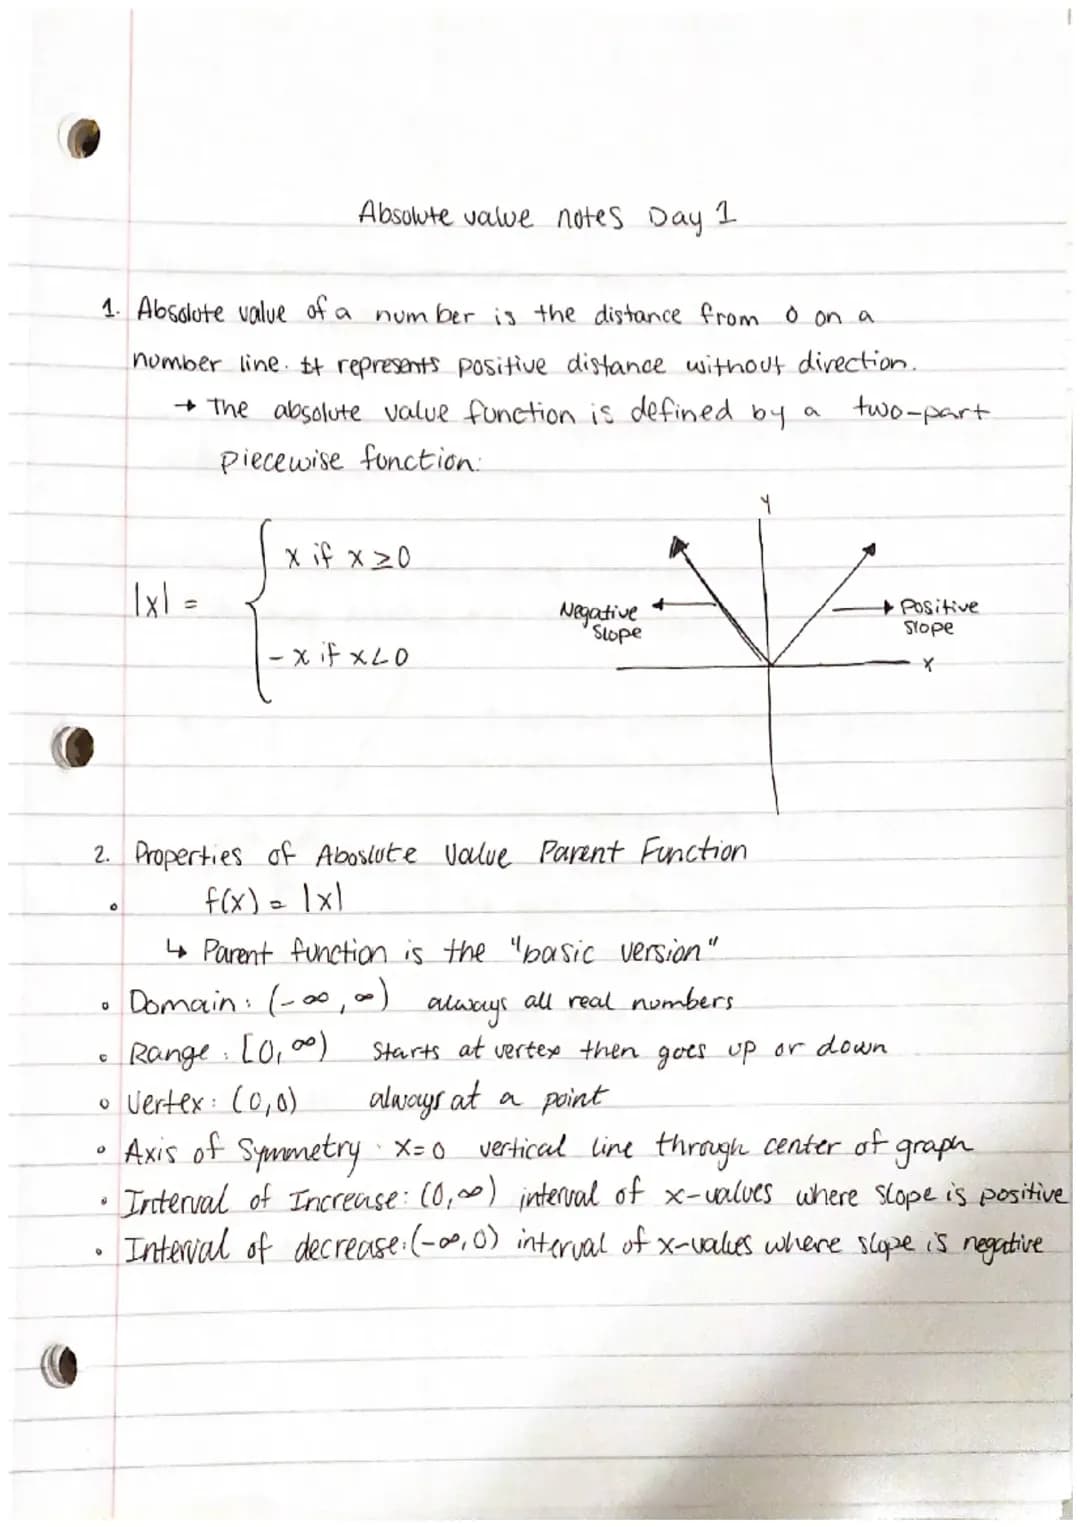 Absolute value notes Day 1
1. Absolute value of a number is the distance from 0 on a
number line. It represents positive distance without direction.
→ The absolute value function is defined by a two-part
piecewise function:
|x| = { x if x ≥ 0
- x if x < 0
y
Negative
Slope
Positive
Slope
x
2. Properties of Aboslute Value Parent Function
• f(x) = |x|
↳ Parent function is the "basic version"
• Domain: (-∞, ∞) always all real numbers
• Range: [0, ∞) Starts at vertex then goes up or down
• Vertex: (0,0) always at a point
• Axis of Symmetry: x=0 vertical line through center of graph
• Interval of Increase: (0,∞) interval of x-values where slope is positive
• Interval of decrease: (-∞,0) interval of x-values where slope is negative